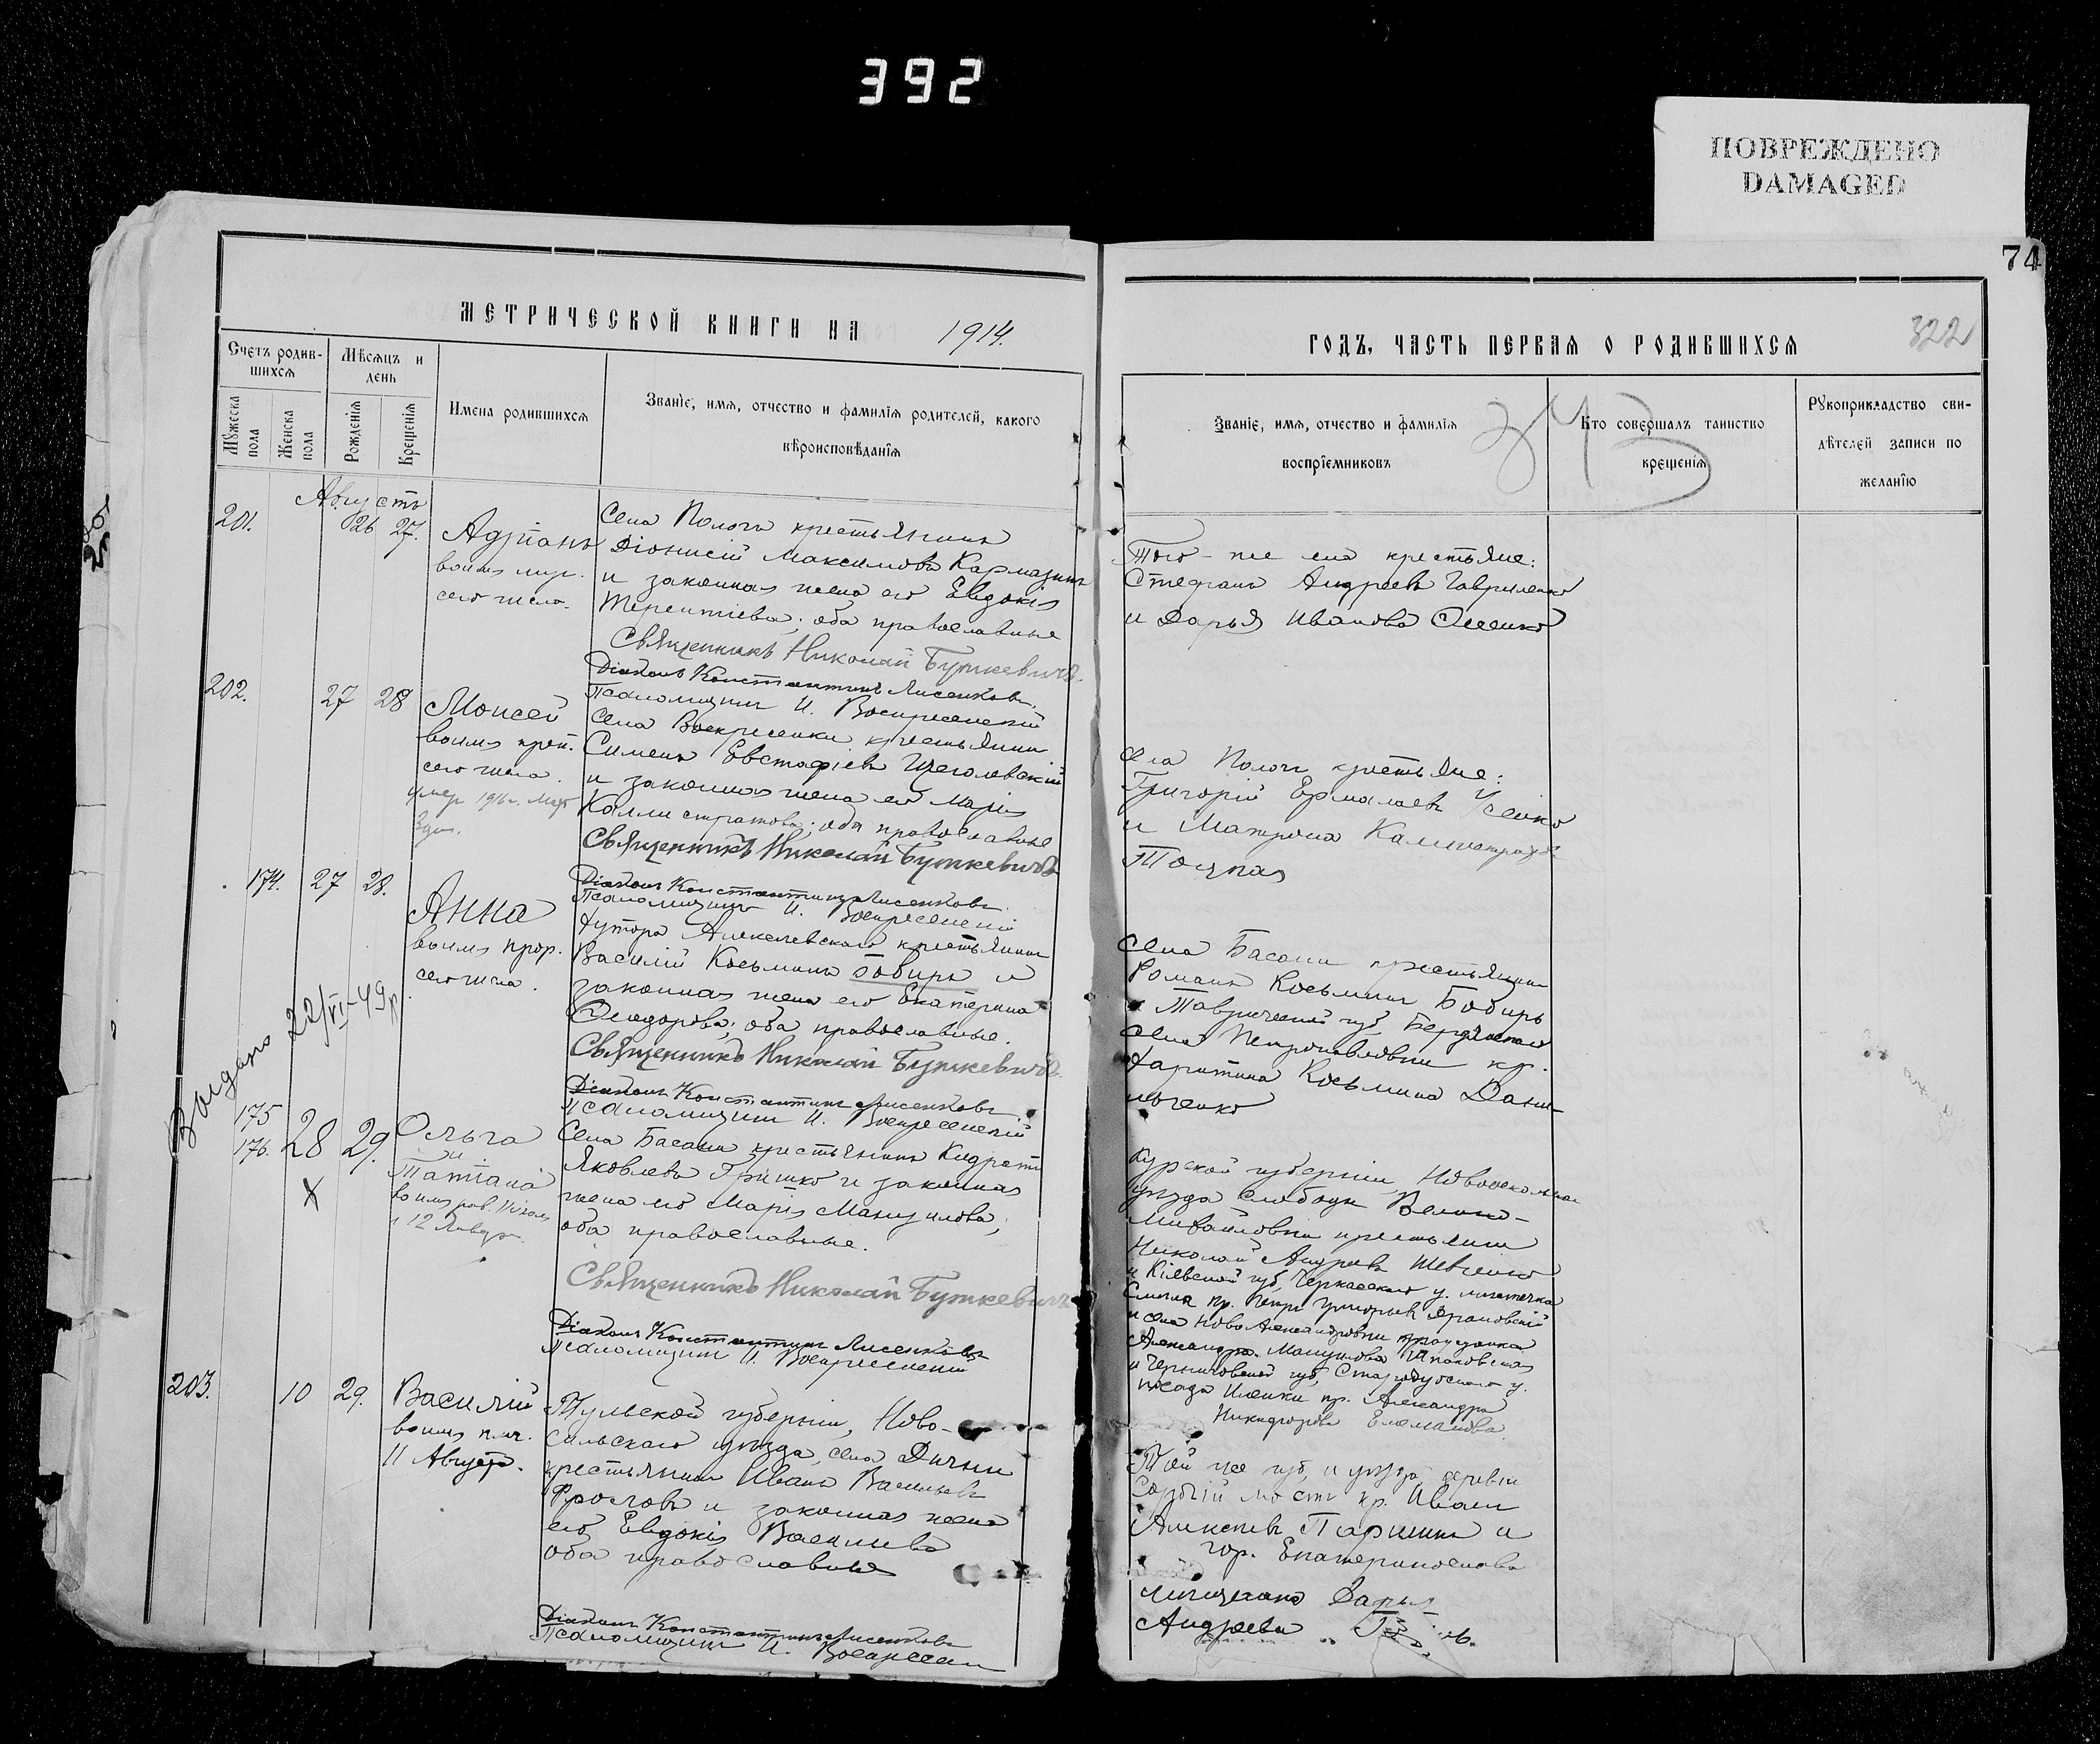 392
ПОВРЕЖДЕНО
DAMAGED
74
322
МЕТРИЧЕСКОЙ КНИГИ НА 1914.
Счетъ родив-
шихся
Мѣсяцъ и
день
Мужеска
пола
Женска
пола
Рожденія
Крещенія
Имена родившихся
Званіе, имя, отчество и фамилія родителей, какого
вѣроисповѣданія
Августъ
201.
26 27.
Адріанъ
сего числа.
Села Пологъ крестьянинъ
Діонисій Максимовъ Кармазинъ
и законная жена его Евдокія
Терентіева; оба православные
Священникъ Николай Буткевичъ.
Діаконъ Константинъ Лисенковъ
Псаломщикъ И. Воскресенскій
202.
27 28
Моисей
сего числа.
умер 1916 г.
Села Воскресенки крестьянинъ
Симеонъ Евстафіевъ Щеголевскій
и законная жена его Марія
Каллистратова; оба православные
Священникъ Николай Буткевичъ
Діаконъ Константинъ Лисенковъ
Псаломщикъ И. Воскресенскій
174.
27 28.
Анна
во имя прор.
сего числа.
Хутора Алексеевскаго крестьянинъ
Василій Косьминъ Бобирь и
законная жена его Екатерина
Ѳеодорова; оба православные.
Священникъ Николай Буткевичъ.
Діаконъ Константинъ Лисенковъ
Псаломщикъ И. Воскресенскій
Выдано 22/VI-49 р.
175
176.
28 29.
Ольга
и
Татіана
12 Января
Села Басани крестьянинъ Кидратъ
Яковлевъ Гришко и законная
жена его Марія Мануилова;
оба православные.
Священникъ Николай Буткевичъ
Діаконъ Константинъ Лисенковъ
Псаломщикъ И. Воскресенскій
203.
10 29.
Василій
во имя
11 Августа.
Тульской губерніи, Ново-
сильскаго уѣзда, села Дични
крестьянинъ Иванъ Васильевъ
Фроловъ и законная жена
его Евдокія Васильева
оба православные
Діаконъ Константинъ Лисенковъ
Псаломщикъ И. Воскресен
ГОДЪ, ЧАСТЬ ПЕРВАЯ О РОДИВШИХСЯ
Званіе, имя, отчество и фамилія
воспріемниковъ
Кто совершалъ таинство
крещенія
Рукоприкладство сви-
дѣтелей записи по
желанію
Того-же села крестьяне:
Стефанъ Андреевъ Гавриленко
и Дарья Иванова
Села Пологъ крестьяне:
Григорій Ермолаевъ Усенко
и Матрона Каллистратова
Села Басани крестьянинъ
Романъ Косьминъ Бобирь
и Таврической губ. Бердянскаго
села Петропавловки кр.
Харитина Косьмина Дани-
льченко
Курской губерніи, Новооскольскаго
уѣзда слободы Велико-
михайловки крестьянин
Николай Андреевъ Шевченко
и Кіевской губ. Черкасскаго у. мѣстечка
Смѣла кр. Петръ Григорьевъ
и села Ново Александровки
Александра Мануилова
и Черниговской губ. Стародубскаго у.
посада Клинки кр. Александра
Никифорова
Той же губ. и уѣзда деревни
мостъ кр. Иванъ
Алексеевъ Паршинъ и
гор. Екатеринослава
мѣщанка Дарья
Андреева